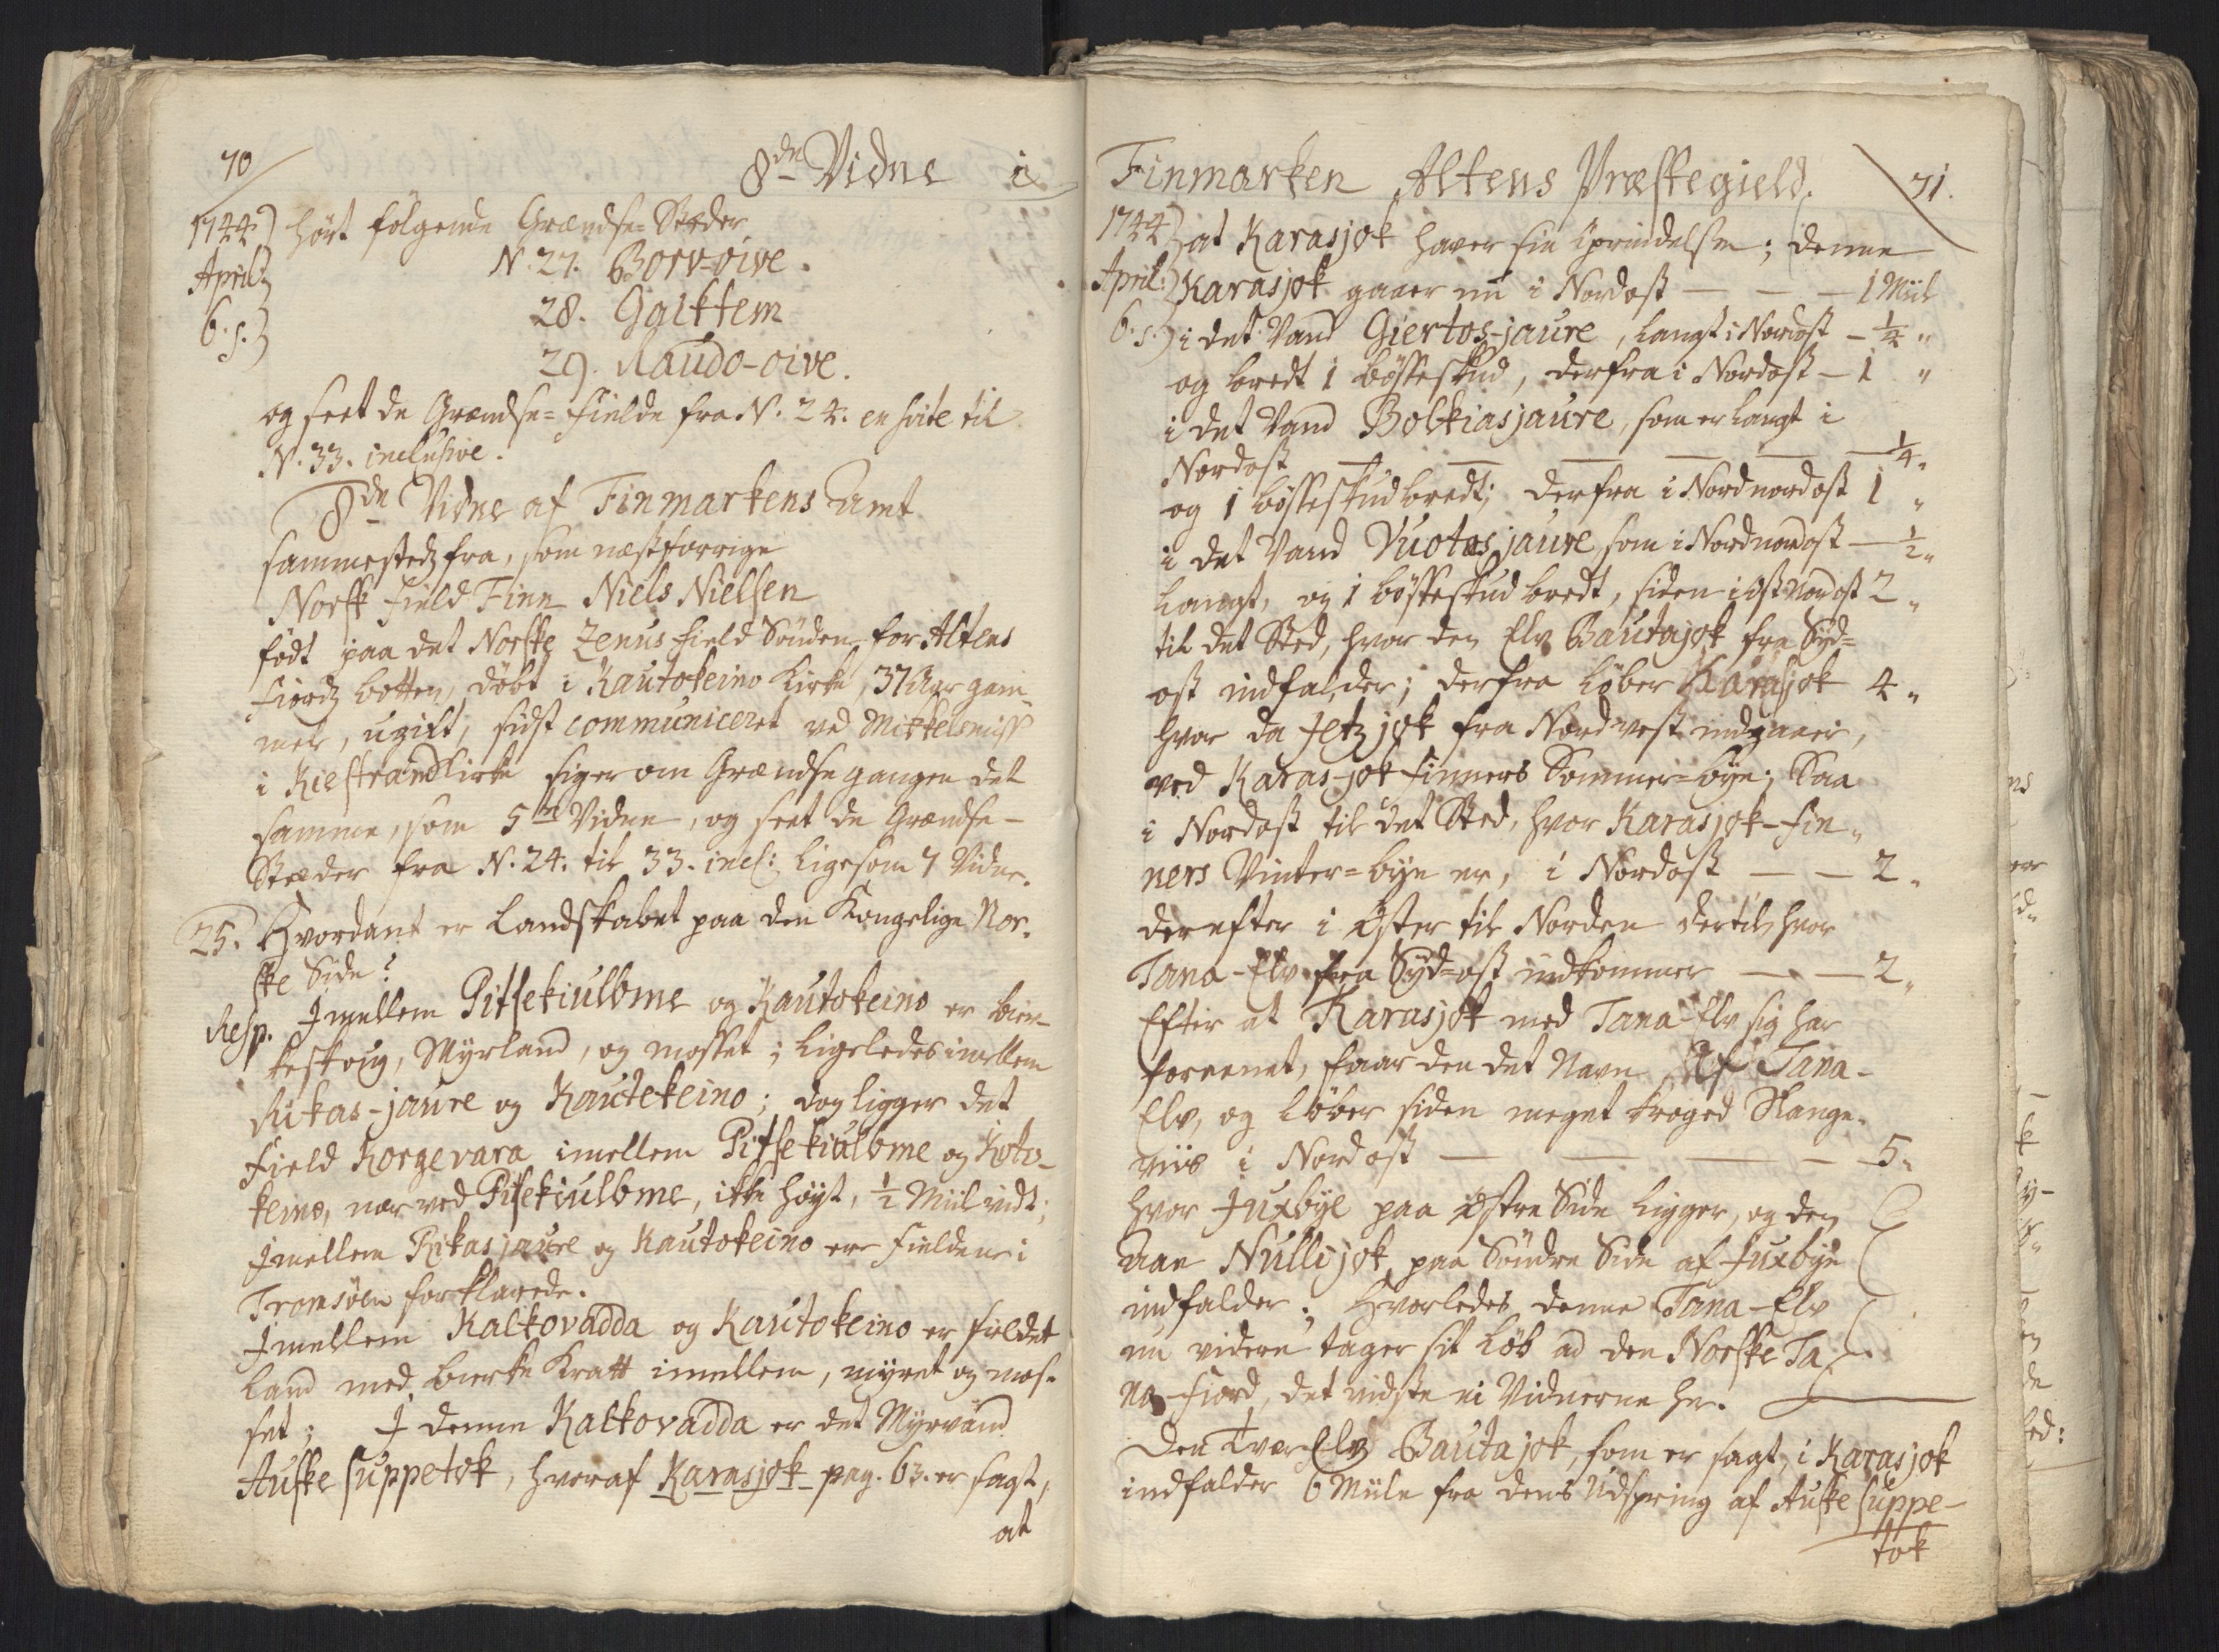 70
8de Vidne i
1744) hört fölgende Grændse-Stæder
April)
N. 27. Borv-oive.
6. s.)
28. Gaiktem
29. Raudo-oive.
og seet de Grændse-Fielde fra N. 24. en suite til
N. 33. inclusive.
8de Vidne af Finmarkens Amt
sammestedz fra, som næstforrige
Norsk Field Finn Niels Nielsen
födt paa det Norske Zenus field Sönden for Altens
Fiordz botten, döbt i Kautokeino Kirke, 37 Aar gam-
mel, ugift, sidst communiceret ved Mikkelsmiss
i Kiestrand Kirke siger om Grændse gangen det
samme, som 5te Vidne, og seet de Grændse-
Stæder fra N. 24. til 33. incl: ligesom 7 Vidne.
25. Hvordant er Landskabet paa den Kongelige Nor-
ske Side?
Resp. Imellem Pitsekiulbme og Kautokeino er bier-
keskoug, Myrland, og mosset; ligeledes imellem
Rikas-jaure og Kautekeino; dog ligger det
Field Korgevara imellem Pitsekiulbme og Koto-
keino, nær ved Pitsekiulbme, ikke høyt, ½ Miil vidt;
Imellem Rikasjaure og Kautokeino ere Fieldene i
Tromsöen forklarede.
Imellem Kalkovadda og Kautokeino er fieldet
Land med bierke Kratt imellem, myret og mos-
set; I denne Kalkovadda er det Myrvand
Auske suppetok, hvoraf Karasjok pag. 63. er sagt,
at
Finmarken Altens Præstegield. 71.
1744) at Karasjok haver sin Oprindelse; denne
April:) Karasjok gaaer nu i Nordost — — — 1 Miil
6. s.) i det Vand Giertos-jaure, langt i Nordost — ¼ "
og bredt 1 bösseskud, derfra i Nordost — 1 "
i det Vand Bolkiasjaure, som er langt i
Nordost — — — — — ¼ "
og 1 bösseskud bredt; derfra i Nordnordost 1 "
i det Vand Vuotasjaure, som i Nordnordost — ½ "
langt, og 1 bösseskud bredt, siden i Ostnordost 2 "
til det Sted, hvor den Elv Bautajok fra Syd-
ost indfalder; derfra löber Karasjok 4 "
hvor da Jetzjok fra Nordvest indgaaer,
ved Karas-jok finners Sommer-bye; Saa
i Nordost til det Sted, hvor Karasjok-Fin-
ners Vinter-bye er, i Nordost — — 2 "
derefter i Öster til Norden dertil, hvor
Tana-Elv fra Syd-ost indkommer — — 2 "
Efter at Karasjok med Tana-Elv sig har
foreenet, faar den det Navn af Tana-
Elv, og löber siden meget kroged Slange-
viis i Nordost — — — — 5 "
hvor Juxbye paa östre Side ligger, og den
Aae Nullijok, paa Söndre Side af Juxbye
indfalder; hvorledes denne Tana-Elv
nu videre tager sit Löb ad den Norske Ta-
na-Fiord, det vidste ei Vidnerne her.
Den Tvær Elv Bautajok, som er sagt, i Karasjok
indfalder 6 Miile fra dens Udspring af Auske suppe-
tok